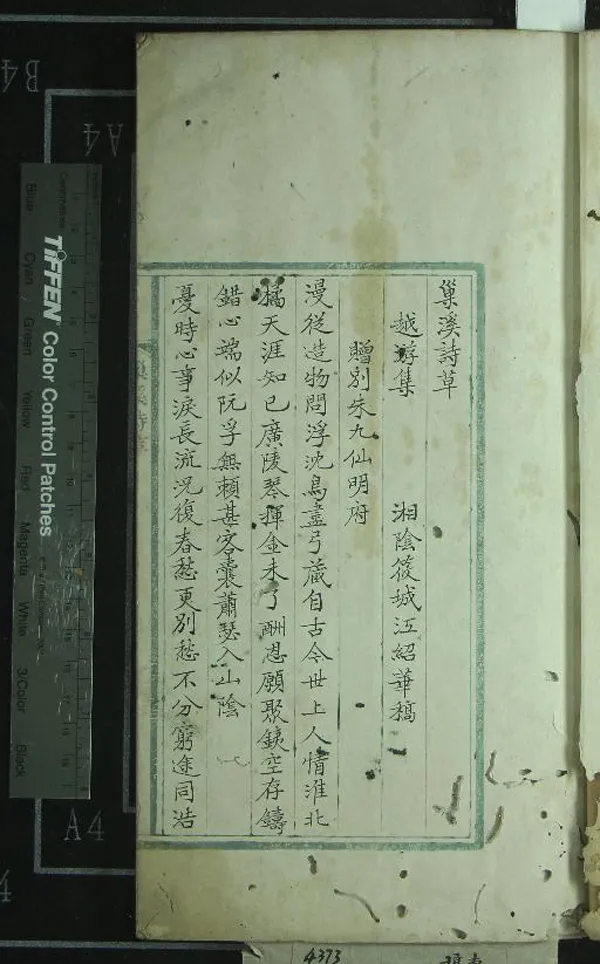 巢溪詩草
越游集　湘陰筱城江紹華稿
贈別朱九仙明府
漫從造物問浮沈鳥盡弓藏自古今世上人情淮北
橘天涯知已廣陵琴揮金未了酬恩願聚鐵空存鑄
錯心端似阮孚無賴甚客囊蕭瑟入山陰
憂時心事淚長流况復春愁更別愁不分窮途同浩
巢溪詩草
TIFFEN Color Control Patches
Blue Cyan Green Yellow Red Magenta White 3/Color Black
B4
A4
A4
4373